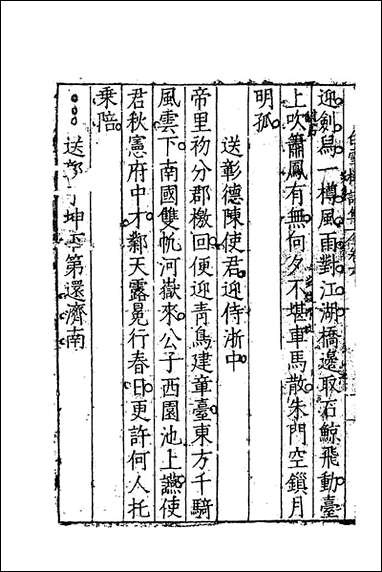 迎劍舄一樽風雨對江湖橋邊取石鯨飛動臺
上吹簫鳳有無何夕不堪車馬散朱門空鎖月
明孤
送彰德陳使君迎侍浙中
帝里初分郡檄回便迎青鳥建章臺東方千騎
風雲下南國雙帆河嶽來公子西園池上讌使
君秋憲府中才鄴天露冕行春日更許何人托
乘陪
送 坤 第還濟南